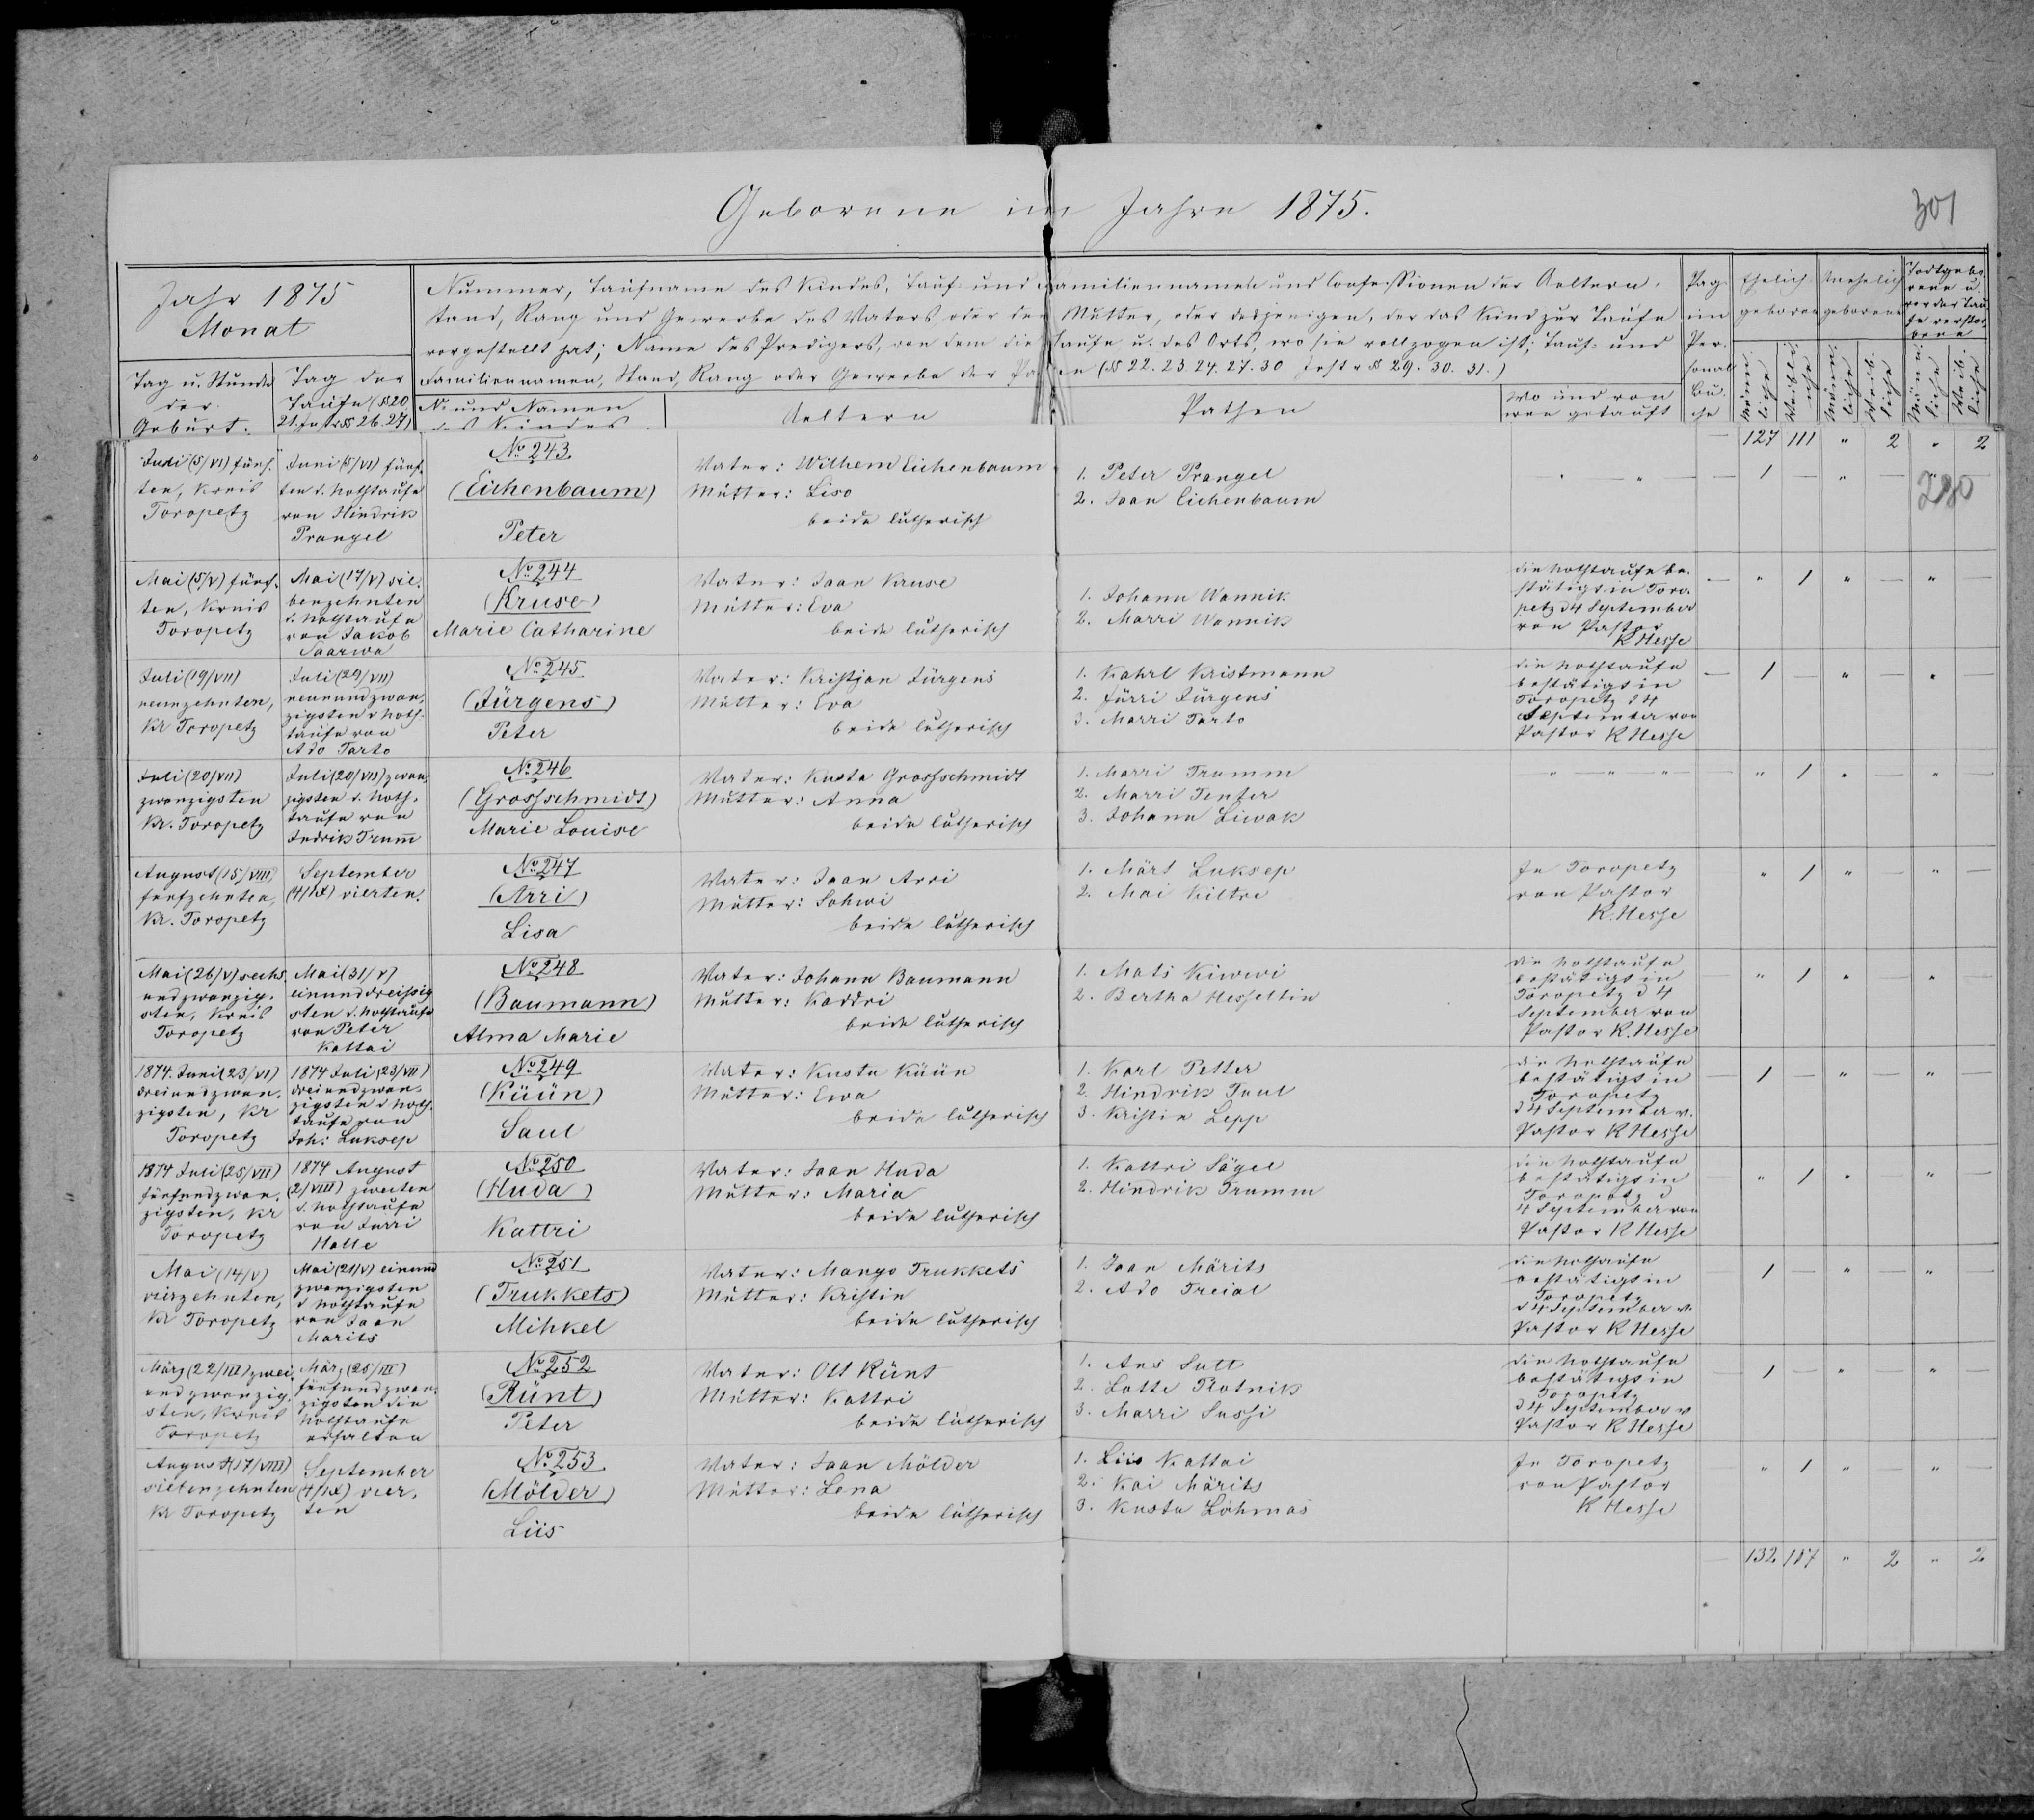 Geborene im Jahre 1875.
301
Jahr 1875
Monat
Tag u. Stunde
der
Geburt.
Tag der
Taufe (§§ 20
21. Instr §§ 26. 27)
Nummer, Taufname des Kindes, Tauf- und Familiennamen und Confessionen der Aeltern,
Stand, Rang und Gewerbe des Vaters oder der Mutter, oder desjenigen, der das Kind zur Taufe
vorgestellt hat; Name des Predigers, von dem die Taufe u. des Orts, wo sie vollzogen ist; Tauf- und
Familiennamen, Stand, Rang oder Gewerbe der Pathen (§§ 22. 23. 24. 27. 30 Instr §§ 29. 30. 31.)
No und Namen
des Kindes
Aeltern
Pathen
Wo und von
wem getauft
Pag
im
Per-
sonal
Bu-
che
Ehelich
geboren
Unehelich
geborene
Todtgebo-
rene u.
vor der Tau-
fe verstor-
bene
Männ-
liche
Weibli-
che
Männ-
liche
Weib-
liche
Männ-
liche
Weib-
liche
— 127 111 " 2 " 2
Juni (5/VI) fünf-
ten, Kreis
Toropetz
Juni (5/VI) fünf-
ten d. Nothtaufe
von Hindrik
Prangel
No 243
(Eichenbaum)
Peter
Vater: Wilhem Eichenbaum
Mutter: Liso
beide lutherisch
1. Peter Prangel
2. Jaan Eichenbaum
" — "
— 1 — " —
280
Mai (5/V) fünf-
ten, Kreis
Toropetz
Mai (17/V) sie-
benzehnten
d. Nothtaufe
von Jakob
Saarwa
No 244
(Kruse)
Marie Catharine
Vater: Jaan Kruse
Mutter: Eva
beide lutherisch
1. Johann Wannik
2. Marri Wannik
die Nothtaufe be-
stätigt in Toro-
petz d 4 September
von Pastor
K Hesse
— " 1 " — " —
Juli (19/VII)
neunzehnten,
Kr Toropetz
Juli (29/VII)
neunundzwan-
zigsten d Noth-
taufe von
Ado Tarto
No 245
(Jürgens)
Peter
Vater: Kristjan Jürgens
Mutter: Eva
beide lutherisch
1. Kahrl Kristmann
2. Jürri Jürgens
3. Marri Tarto
die Nothtaufe
bestätigt in
Toropetz d 4
September von
Pastor K Hesse
— 1 — " — "
Juli (20/VII)
zwanzigsten
Kr. Toropetz
Juli (20/VII) zwan-
zigsten d. Noth-
taufe von
Indrik Trumm
No 246
(Grosschmidt)
Marie Louise
Vater: Kusta Grosschmidt
Mutter: Anna
beide lutherisch
1. Marri Trumm
2. Marri Tenter
3. Johann Liwak
" — " — " —
" 1 " — " —
August (15/VIII)
fünfzehnten,
Kr. Toropetz
September
(4/IX) vierten.
No 247
(Arri)
Lisa
Vater: Jaan Arri
Mutter: Sohwi
beide lutherisch
1. Märt Luksep
2. Mai Kiltre
In Toropetz
von Pastor
K. Hesse
— " 1 " — " —
Mai (26/V) sechs-
undzwanzig-
sten, Kreis
Toropetz
Mai (31/V)
einunddreissig
sten d. Nothtaufe
von Peter
Kattai
No 248
(Baumann)
Alma Marie
Vater: Johann Baumann
Mutter: Kaddri
beide lutherisch
1. Mats Kiwwi
2. Bertha Hesseltin
die Nothtaufe
bestätigt in
Toropetz d 4
September von
Pastor K. Hesse
— " 1 " " —
1874. Juni (23/VI)
dreiundzwan-
zigsten, Kr
Toropetz
1874 Juli (23/VII)
dreiundzwan-
zigsten d Noth-
taufe von
Joh: Luksep
No 249
(Küün)
Saul
Vater: Kusta Küün
Mutter: Ewa
beide lutherisch
1. Karl Petter
2. Hindrik Tuul
3. Kristin Lepp
die Nothtaufe
bestätigt in
Toropetz
d 4 September v.
Pastor K Hesse
— 1 — " — " —
1874 Juli (25/VII)
fünfundzwan-
zigsten, Kr
Toropetz
1874 August
(2/VIII) zweiten
d. Nothtaufe
von Jurri
Halle
No 250
(Huda)
Kattri
Vater: Jaan Huda
Mutter: Maria
beide lutherisch
1. Kattri Sägel
2. Hindrik Trumm
die Nothtaufe
bestätigt in
Toropetz d
4 September von
Pastor K Hesse
— " 1 " " —
Mai (14/V)
vierzehnten,
Kr Toropetz
Mai (21/V) einund
zwanzigsten
d Nothtaufe
von Jaan
Marits
No 251
(Trukkets)
Mihkel
Vater: Mango Trukkets
Mutter: Kristin
beide lutherisch
1. Jaan Märits
2. Ado Treial
die Nothtaufe
bestätigt in
Toropetz
d 4 September v.
Pastor K Hesse
— 1 — " — " —
März (22/III) zwei-
undzwanzig-
sten, Kreis
Toropetz
März (25/III)
fünfundzwan-
zigsten die
Nothtaufe
erhalten
No 252
(Rünt)
Peter
Vater: Ott Rünt
Mutter: Kattri
beide lutherisch
1. Ans Sutt
2. Lotte Plotnik
3. Marri Sussi
die Nothtaufe
bestätigt in
Toropetz
d 4 September v
Pastor K Hesse
— 1 — " " —
August (17/VIII)
siebenzehnten
Kr Toropetz
September
(4/IX) vier-
ten
No 253
(Mölder)
Liis
Vater: Jaan Mölder
Mutter: Lena
beide lutherisch
1. Liis Kattai
2. Kai Märits
3. Kusta Lohmas
In Toropetz
von Pastor
K Hesse
— " 1 " — " —
— 132 187 " 2 " 2